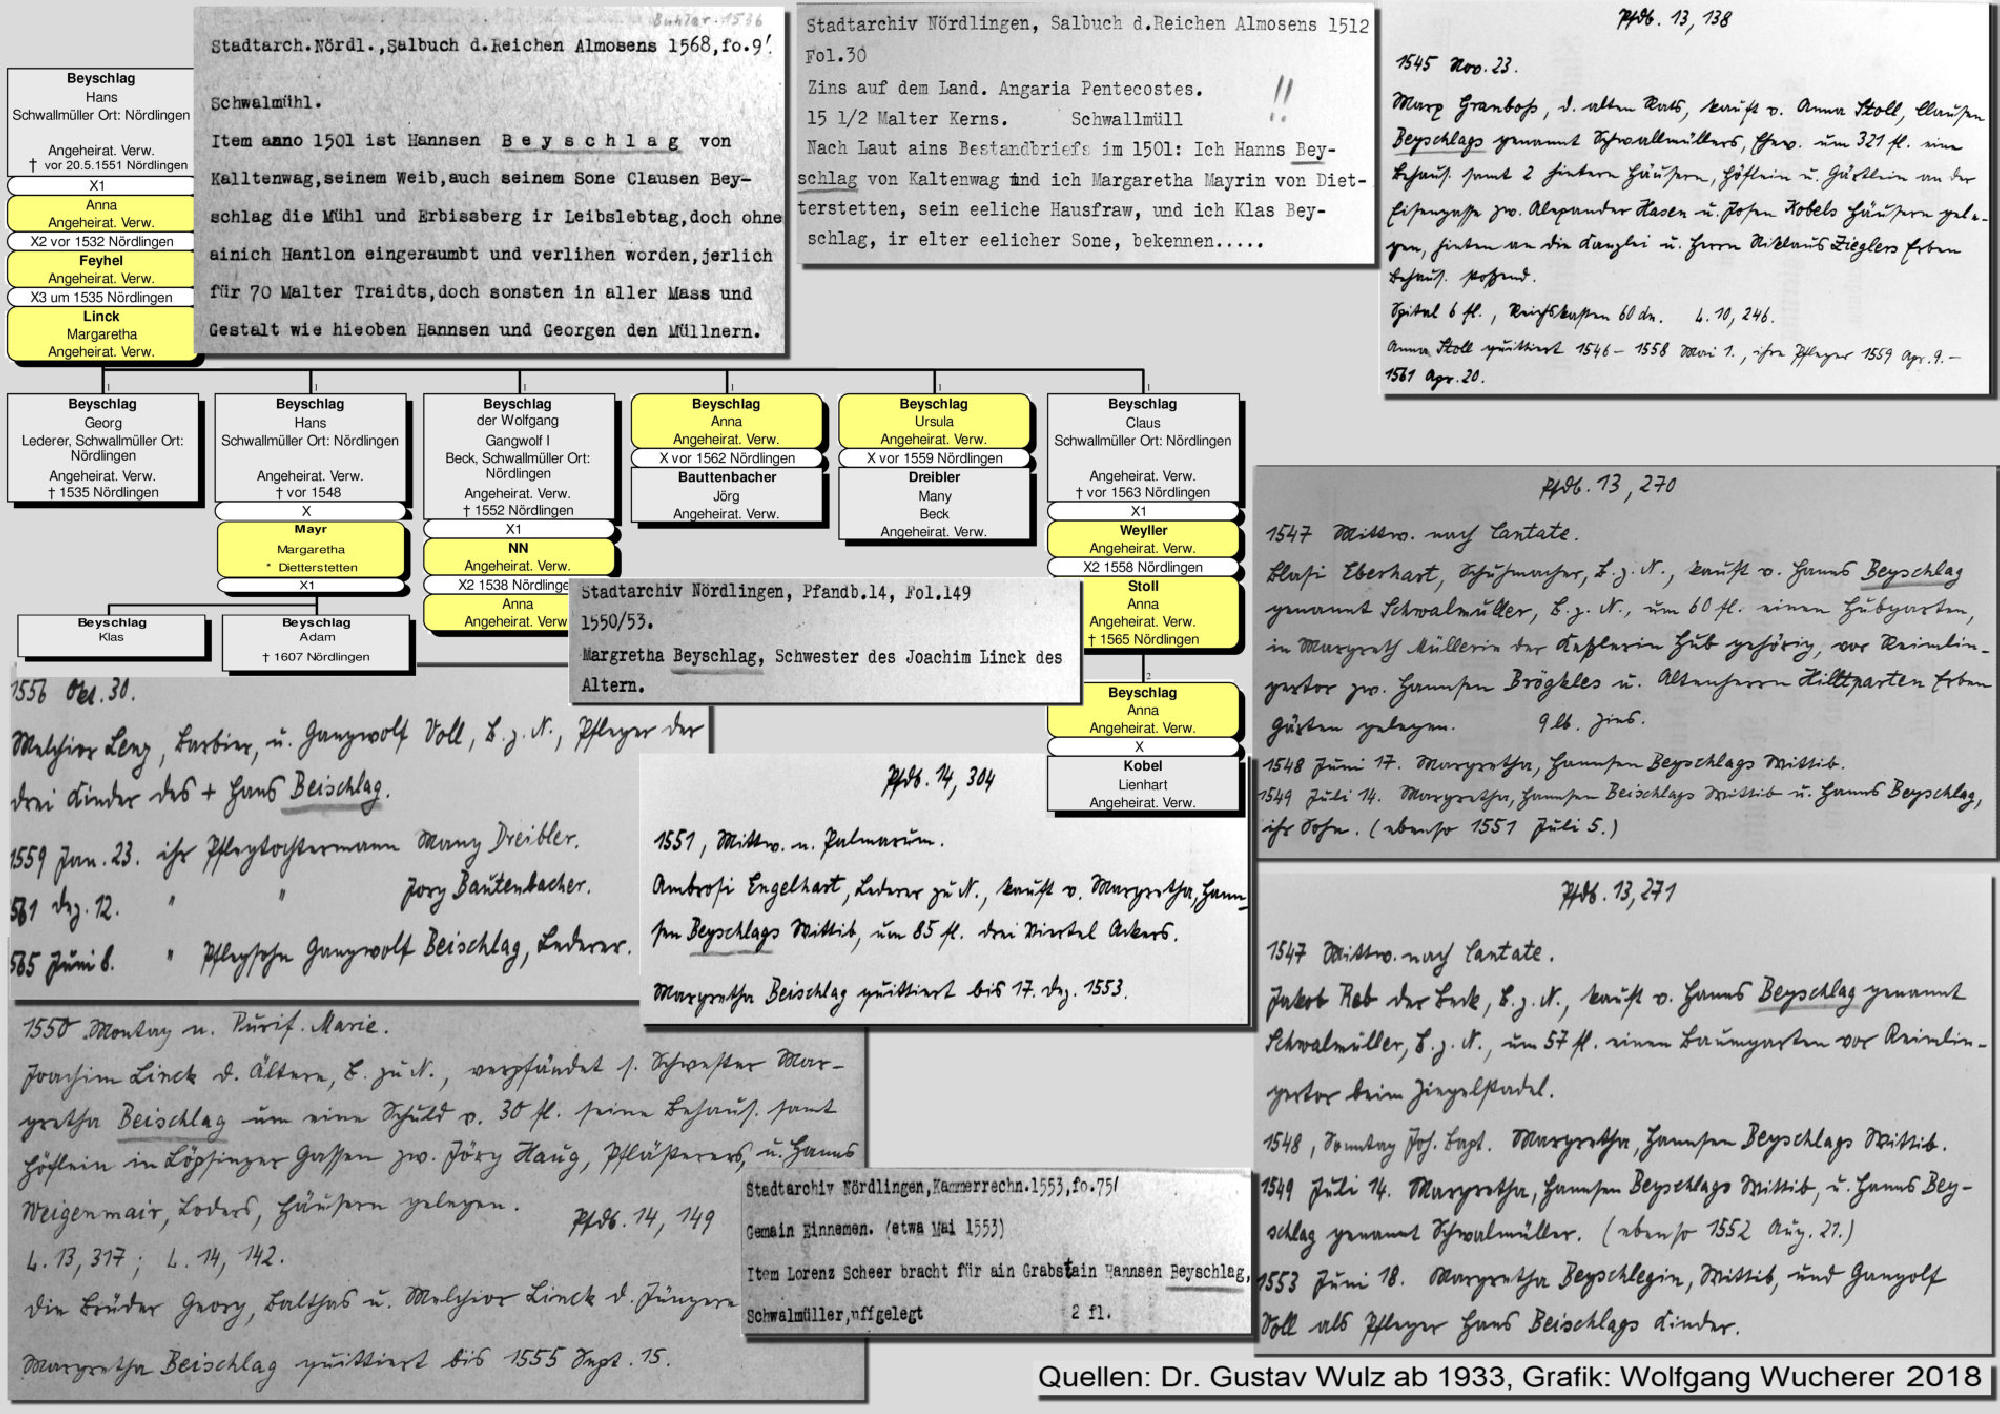 Beyschlag
Hans
Schwallmüller Ort: Nördlingen
Angeheirat. Verw.
† vor 20.5.1551 Nördlingen
X1
Anna
Angeheirat. Verw.
X2 vor 1532 Nördlingen
Feyhel
Angeheirat. Verw.
X3 um 1535 Nördlingen
Linck
Margaretha
Angeheirat. Verw.
Stadtarch.Nördl.,Salbuch d.Reichen Almosens 1568,fo.9'
Schwalmühl.
Item anno 1501 ist Hannsen B e y s c h l a g von
Kalltenwag,seinem Weib,auch seinem Sone Clausen Bey-
schlag die Mühl und Erbissberg ir Leibslebtag,doch ohne
ainich Hantlon eingeraumbt und verlihen worden,jerlich
für 70 Malter Traidts,doch sonsten in aller Mass und
Gestalt wie hieoben Hannsen und Georgen den Müllnern.
Stadtarchiv Nördlingen, Salbuch d.Reichen Almosens 1512
Fol.30
Zins auf dem Land. Angaria Pentecostes. !!
15 1/2 Malter Kerns. Schwallmüll
Nach Laut ains Bestandbriefs im 1501: Ich Hanns Bey-
schlag von Kaltenwag und ich Margaretha Mayrin von Diet-
terstetten, sein eeliche Hausfraw, und ich Klas Bey-
schlag, ir elter eelicher Sone, bekennen.....
Pfdb. 13, 138
1545 Nov. 23.
Marx Granboß, d. alten Rats, kauft v. Anna Stoll, Clausen
Beyschlags genannt Schwallmüllers, Ehew. um 321 fl. eine
Behaus. samt 2 hintern Häusern, Höflein u. Gärtlein an der
Eisengasse zw. Alexander Hasen u. Josen Kobels Häusern gele-
gen, hinten an die Kanzlei u. Herrn Niklaus Zieglers Erben
Behaus. stoßend.
Spital 6 fl., Reichskasten 60 dn. L. 10, 246.
Anna Stoll quittiert 1546 – 1558 Mai 1., ihre Pfleger 1559 Apr. 9. –
1561 Apr. 20.
Beyschlag
Georg
Lederer, Schwallmüller Ort:
Nördlingen
Angeheirat. Verw.
† 1535 Nördlingen
Beyschlag
Hans
Schwallmüller Ort: Nördlingen
Angeheirat. Verw.
† vor 1548
X
Mayr
Margaretha
* Dietterstetten
X1
Beyschlag
der Wolfgang
Gangwolf I
Beck, Schwallmüller Ort:
Nördlingen
Angeheirat. Verw.
† 1552 Nördlingen
X1
NN
Angeheirat. Verw.
X2 1538 Nördlinge
Anna
Angeheirat. Verw
Beyschlag
Anna
Angeheirat. Verw.
X vor 1562 Nördlingen
Bauttenbacher
Jörg
Angeheirat. Verw.
Beyschlag
Ursula
Angeheirat. Verw.
X vor 1559 Nördlingen
Dreibler
Many
Beck
Angeheirat. Verw.
Beyschlag
Claus
Schwallmüller Ort: Nördlingen
Angeheirat. Verw.
† vor 1563 Nördlingen
X1
Weyller
Angeheirat. Verw.
X2 1558 Nördlingen
Stoll
Anna
Angeheirat. Verw.
† 1565 Nördlingen
Beyschlag
Klas
Beyschlag
Adam
† 1607 Nördlingen
2
Beyschlag
Anna
Angeheirat. Verw.
X
Kobel
Lienhart
Angeheirat. Verw.
Stadtarchiv Nördlingen, Pfandb.14, Fol.149
1550/53.
Margretha Beyschlag, Schwester des Joachim Linck des
Altern.
Pfdb. 13, 270
1547 Mittw. nach Cantate.
Blasi Eberhart, Schuhmacher, B. z. N., kauft v. Hanns Beyschlag
genannt Schwalmüller, B. z. N., um 60 fl. einen Hubgarten,
in Margreth Müllerin der Keßlerin Hub gehörig, vor Reimlin-
gertor zw. Hannsen Brögkles u. Altenherrn Hilltparten Erben
Gärten gelegen. 9 lb. Zins.
1548 Juni 17. Margretha, Hannsen Beyschlags Wittib.
1549 Juli 14. Margretha, Hannsen Beischlags Wittib u. Hanns Beyschlag,
ihr Sohn. (ebenso 1551 Juli 5.)
1556 Okt. 30.
Melchior Leng, Barbier, u. Gangwolf Voll, B. z. N., Pfleger der
drei Kinder des + Hans Beischlag.
1559 Jan. 23. ihr Pflegtochtermann Many Dreibler.
561 Dez. 12. " " Jorg Bautenbacher.
565 Juni 8. " Pflegsohn Gangwolf Beischlag, Lederer.
Pfdb. 14, 304
1551, Mittw. n. Palmarum.
Ambrosi Engelhart, Lederer zu N., kauft v. Margretha, Hann-
sen Beyschlags Wittib, um 85 fl. drei Viertel Ackers.
Margretha Beischlag quittiert bis 17. Dez. 1553.
Pfdb. 13, 271
1547 Mittw. nach Cantate.
Jakob Rab der Beck, B. z. N., kauft v. Hanns Beyschlag genannt
Schwalmüller, B. z. N., um 57 fl. einen Baumgarten vor Reimlin-
gertor beim Ziegelstadel.
1548, Sonntag Joh. Bapt. Margretha, Hannsen Beyschlags Wittib.
1549 Juli 14. Margretha, Hannsen Beyschlags Wittib, u. Hanns Bey-
schlag genannt Schwalmüller. (ebenso 1552 Aug. 21.)
1553 Juni 18. Margretha Beyschlegin, Wittib, und Gangolf
Voll als Pfleger Hans Beischlags Kinder.
1550 Montag n. Purif. Marie.
Joachim Linck d. Ältere, B. zu N., verpfändet s. Schwester Mar-
gretha Beischlag um eine Schuld v. 30 fl. seine Behaus. samt
Höflein in Löpsinger Gassen zw. Jörg Haug, Pflästerers, u. Hanns
Weigenmair, Loders, Häusern gelegen.
Pfdb. 14, 149
L. 13, 317 ; L. 14, 142.
Die Brüder Georg, Balthas u. Melchior Linck d. Jüngere
Margretha Beischlag quittiert bis 1555 Sept. 15.
Stadtarchiv Nördlingen,Kammerrechn.1553,fo.75/
Gemain Einnemen. (etwa Mai 1553)
Item Lorenz Scheer bracht für ain Grabstain Hannsen Beyschlag,
Schwalmüller,uffgelegt 2 fl.
Quellen: Dr. Gustav Wulz ab 1933, Grafik: Wolfgang Wucherer 2018